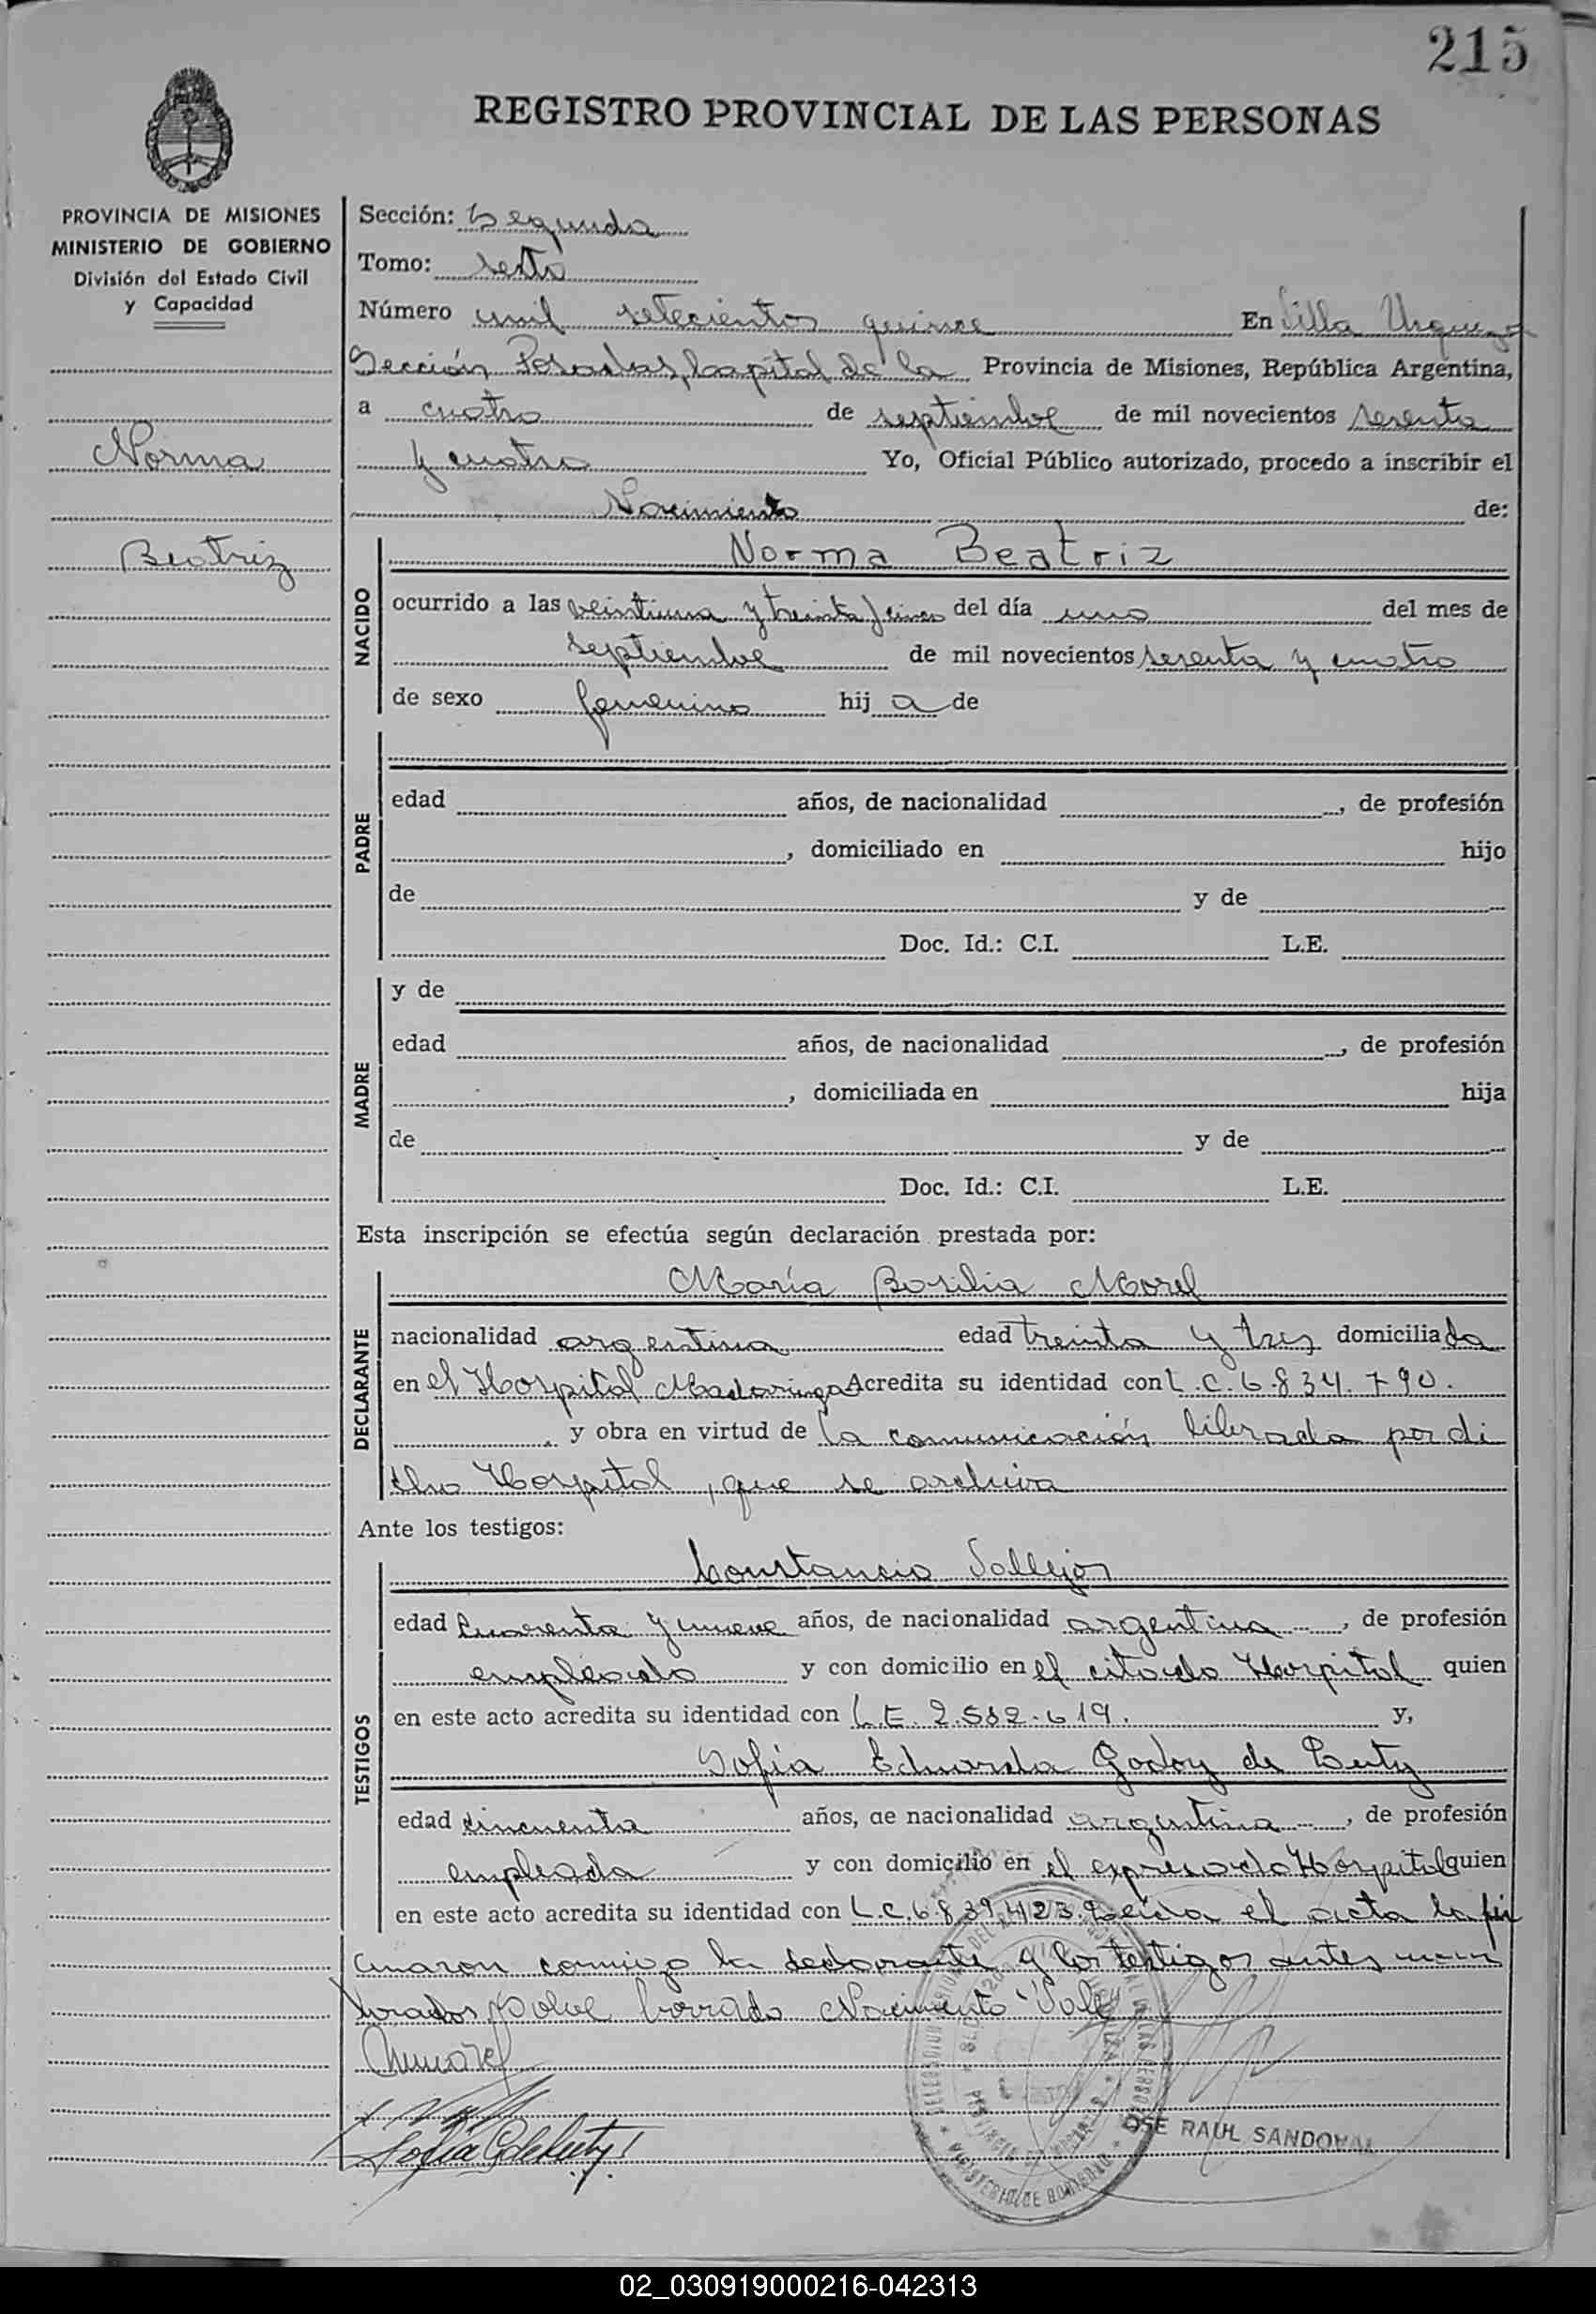 215
REGISTRO PROVINCIAL DE LAS PERSONAS
PROVINCIA DE MISIONES
MINISTERIO DE GOBIERNO
División del Estado Civil
y Capacidad
Norma
Beatriz
Sección: Segunda
Tomo: sexto
Número mil setecientos quince En Villa Urquiza
Sección Posadas, Capital de la Provincia de Misiones, República Argentina,
a cuatro de septiembre de mil novecientos sesenta
y cuatro Yo, Oficial Público autorizado, procedo a inscribir el
Nacimiento de:
NACIDO
Norma Beatriz
ocurrido a las veintiuna y treinta y cinco del día uno del mes de
septiembre de mil novecientos sesenta y cuatro
de sexo femenino hij a de
PADRE
edad años, de nacionalidad , de profesión
, domiciliado en hijo
de y de
Doc. Id.: C.I. L.E.
MADRE
y de
edad años, de nacionalidad , de profesión
, domiciliada en hija
de y de
Doc. Id.: C.I. L.E.
Esta inscripción se efectúa según declaración prestada por:
DECLARANTE
María Basilia Morel
nacionalidad argentina edad treinta y tres domiciliada
en el Hospital Madariaga Acredita su identidad con L.C. 6.834.790.
y obra en virtud de la comunicación librada por di
cho Hospital, que se archiva
Ante los testigos:
TESTIGOS
Constancio Vallejos
edad cuarenta y nueve años, de nacionalidad argentina , de profesión
empleado y con domicilio en el citado Hospital quien
en este acto acredita su identidad con L.E. 2.582.619. y,
Sofia Eduarda Godoy de
edad cincuenta años, de nacionalidad argentina , de profesión
empleada y con domicilio en el expresado Hospital quien
en este acto acredita su identidad con L.C. 6.839.423. Leída el acta la fir
maron conmigo la declarante y los testigos antes nom
brados. Sobre borrado Nacimiento Vale
JOSE RAUL SANDOVAL
02_030919000216-042313